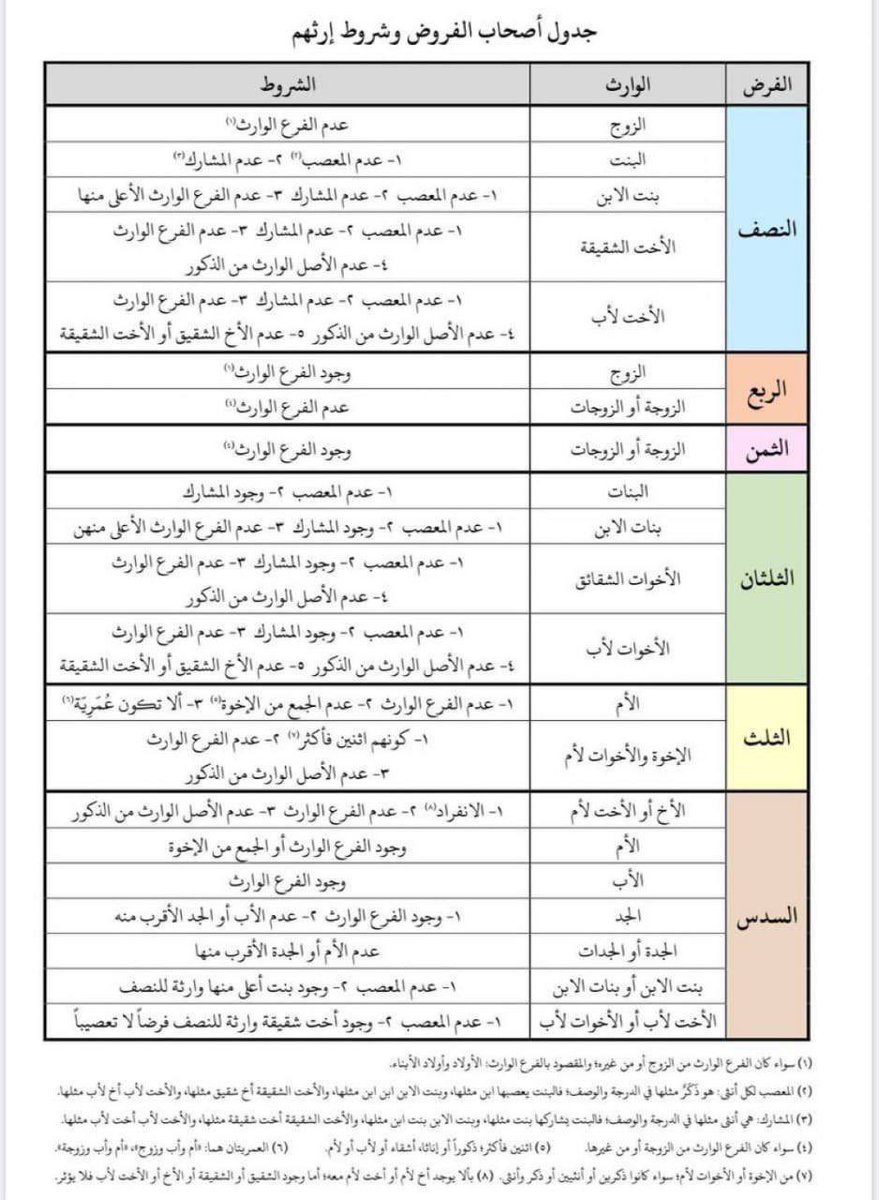 جدول أصحاب الفروض وشروط إرثهم
الفرض الوارث الشروط
النصف
الزوج عدم الفرع الوارث(١)
البنت ١- عدم المعصب(٢) ٢- عدم المشارك(٣)
بنت الابن ١- عدم المعصب ٢- عدم المشارك ٣- عدم الفرع الوارث الأعلى منها
الأخت الشقيقة ١- عدم المعصب ٢- عدم المشارك ٣- عدم الفرع الوارث
٤- عدم الأصل الوارث من الذكور
الأخت لأب ١- عدم المعصب ٢- عدم المشارك ٣- عدم الفرع الوارث
٤- عدم الأصل الوارث من الذكور ٥- عدم الأخ الشقيق أو الأخت الشقيقة
الربع
الزوج وجود الفرع الوارث(١)
الزوجة أو الزوجات عدم الفرع الوارث(٤)
الثمن
الزوجة أو الزوجات وجود الفرع الوارث(٤)
الثلثان
البنات ١- عدم المعصب ٢- وجود المشارك
بنات الابن ١- عدم المعصب ٢- وجود المشارك ٣- عدم الفرع الوارث الأعلى منهن
الأخوات الشقائق ١- عدم المعصب ٢- وجود المشارك ٣- عدم الفرع الوارث
٤- عدم الأصل الوارث من الذكور
الأخوات لأب ١- عدم المعصب ٢- وجود المشارك ٣- عدم الفرع الوارث
٤- عدم الأصل الوارث من الذكور ٥- عدم الأخ الشقيق أو الأخت الشقيقة
الثلث
الأم ١- عدم الفرع الوارث ٢- عدم الجمع من الإخوة(٥) ٣- ألا تكون عُمَرِيّة(٦)
الإخوة والأخوات لأم ١- كونهم اثنين فأكثر(٧) ٢- عدم الفرع الوارث
٣- عدم الأصل الوارث من الذكور
السدس
الأخ أو الأخت لأم ١- الانفراد(٨) ٢- عدم الفرع الوارث ٣- عدم الأصل الوارث من الذكور
الأم وجود الفرع الوارث أو الجمع من الإخوة
الأب وجود الفرع الوارث
الجد ١- وجود الفرع الوارث ٢- عدم الأب أو الجد الأقرب منه
الجدة أو الجدات عدم الأم أو الجدة الأقرب منها
بنت الابن أو بنات الابن ١- عدم المعصب ٢- وجود بنت أعلى منها وارثة للنصف
الأخت لأب أو الأخوات لأب ١- عدم المعصب ٢- وجود أخت شقيقة وارثة للنصف فرضاً لا تعصيباً
(١) سواء كان الفرع الوارث من الزوج أو من غيره؛ والمقصود بالفرع الوارث: الأولاد وأولاد الأبناء.
(٢) المعصب لكل أنثى: هو ذَكَرٌ مثلها في الدرجة والوصف؛ فالبنت يعصبها ابن مثلها، وبنت الابن ابن ابن مثلها، والأخت الشقيقة أخ شقيق مثلها، والأخت لأب أخ لأب مثلها.
(٣) المشارك: هي أنثى مثلها في الدرجة والوصف؛ فالبنت يشاركها بنت مثلها، وبنت الابن بنت ابن مثلها، والأخت الشقيقة أخت شقيقة مثلها، والأخت لأب أخت لأب مثلها.
(٤) سواء كان الفرع الوارث من الزوجة أو من غيرها. (٥) اثنين فأكثر؛ ذكوراً أو إناثا، أشقاء أو لأب أو لأم. (٦) العمريتان هما: «أم وأب وزوج»، «أم وأب وزوجة».
(٧) من الإخوة أو الأخوات لأم؛ سواء كانوا ذكرين أو أنثيين أو ذكر وأنثى. (٨) بألا يوجد أخ لأم أو أخت لأم معه؛ أما وجود الشقيق أو الشقيقة أو الأخ أو الأخت لأب فلا يؤثر.